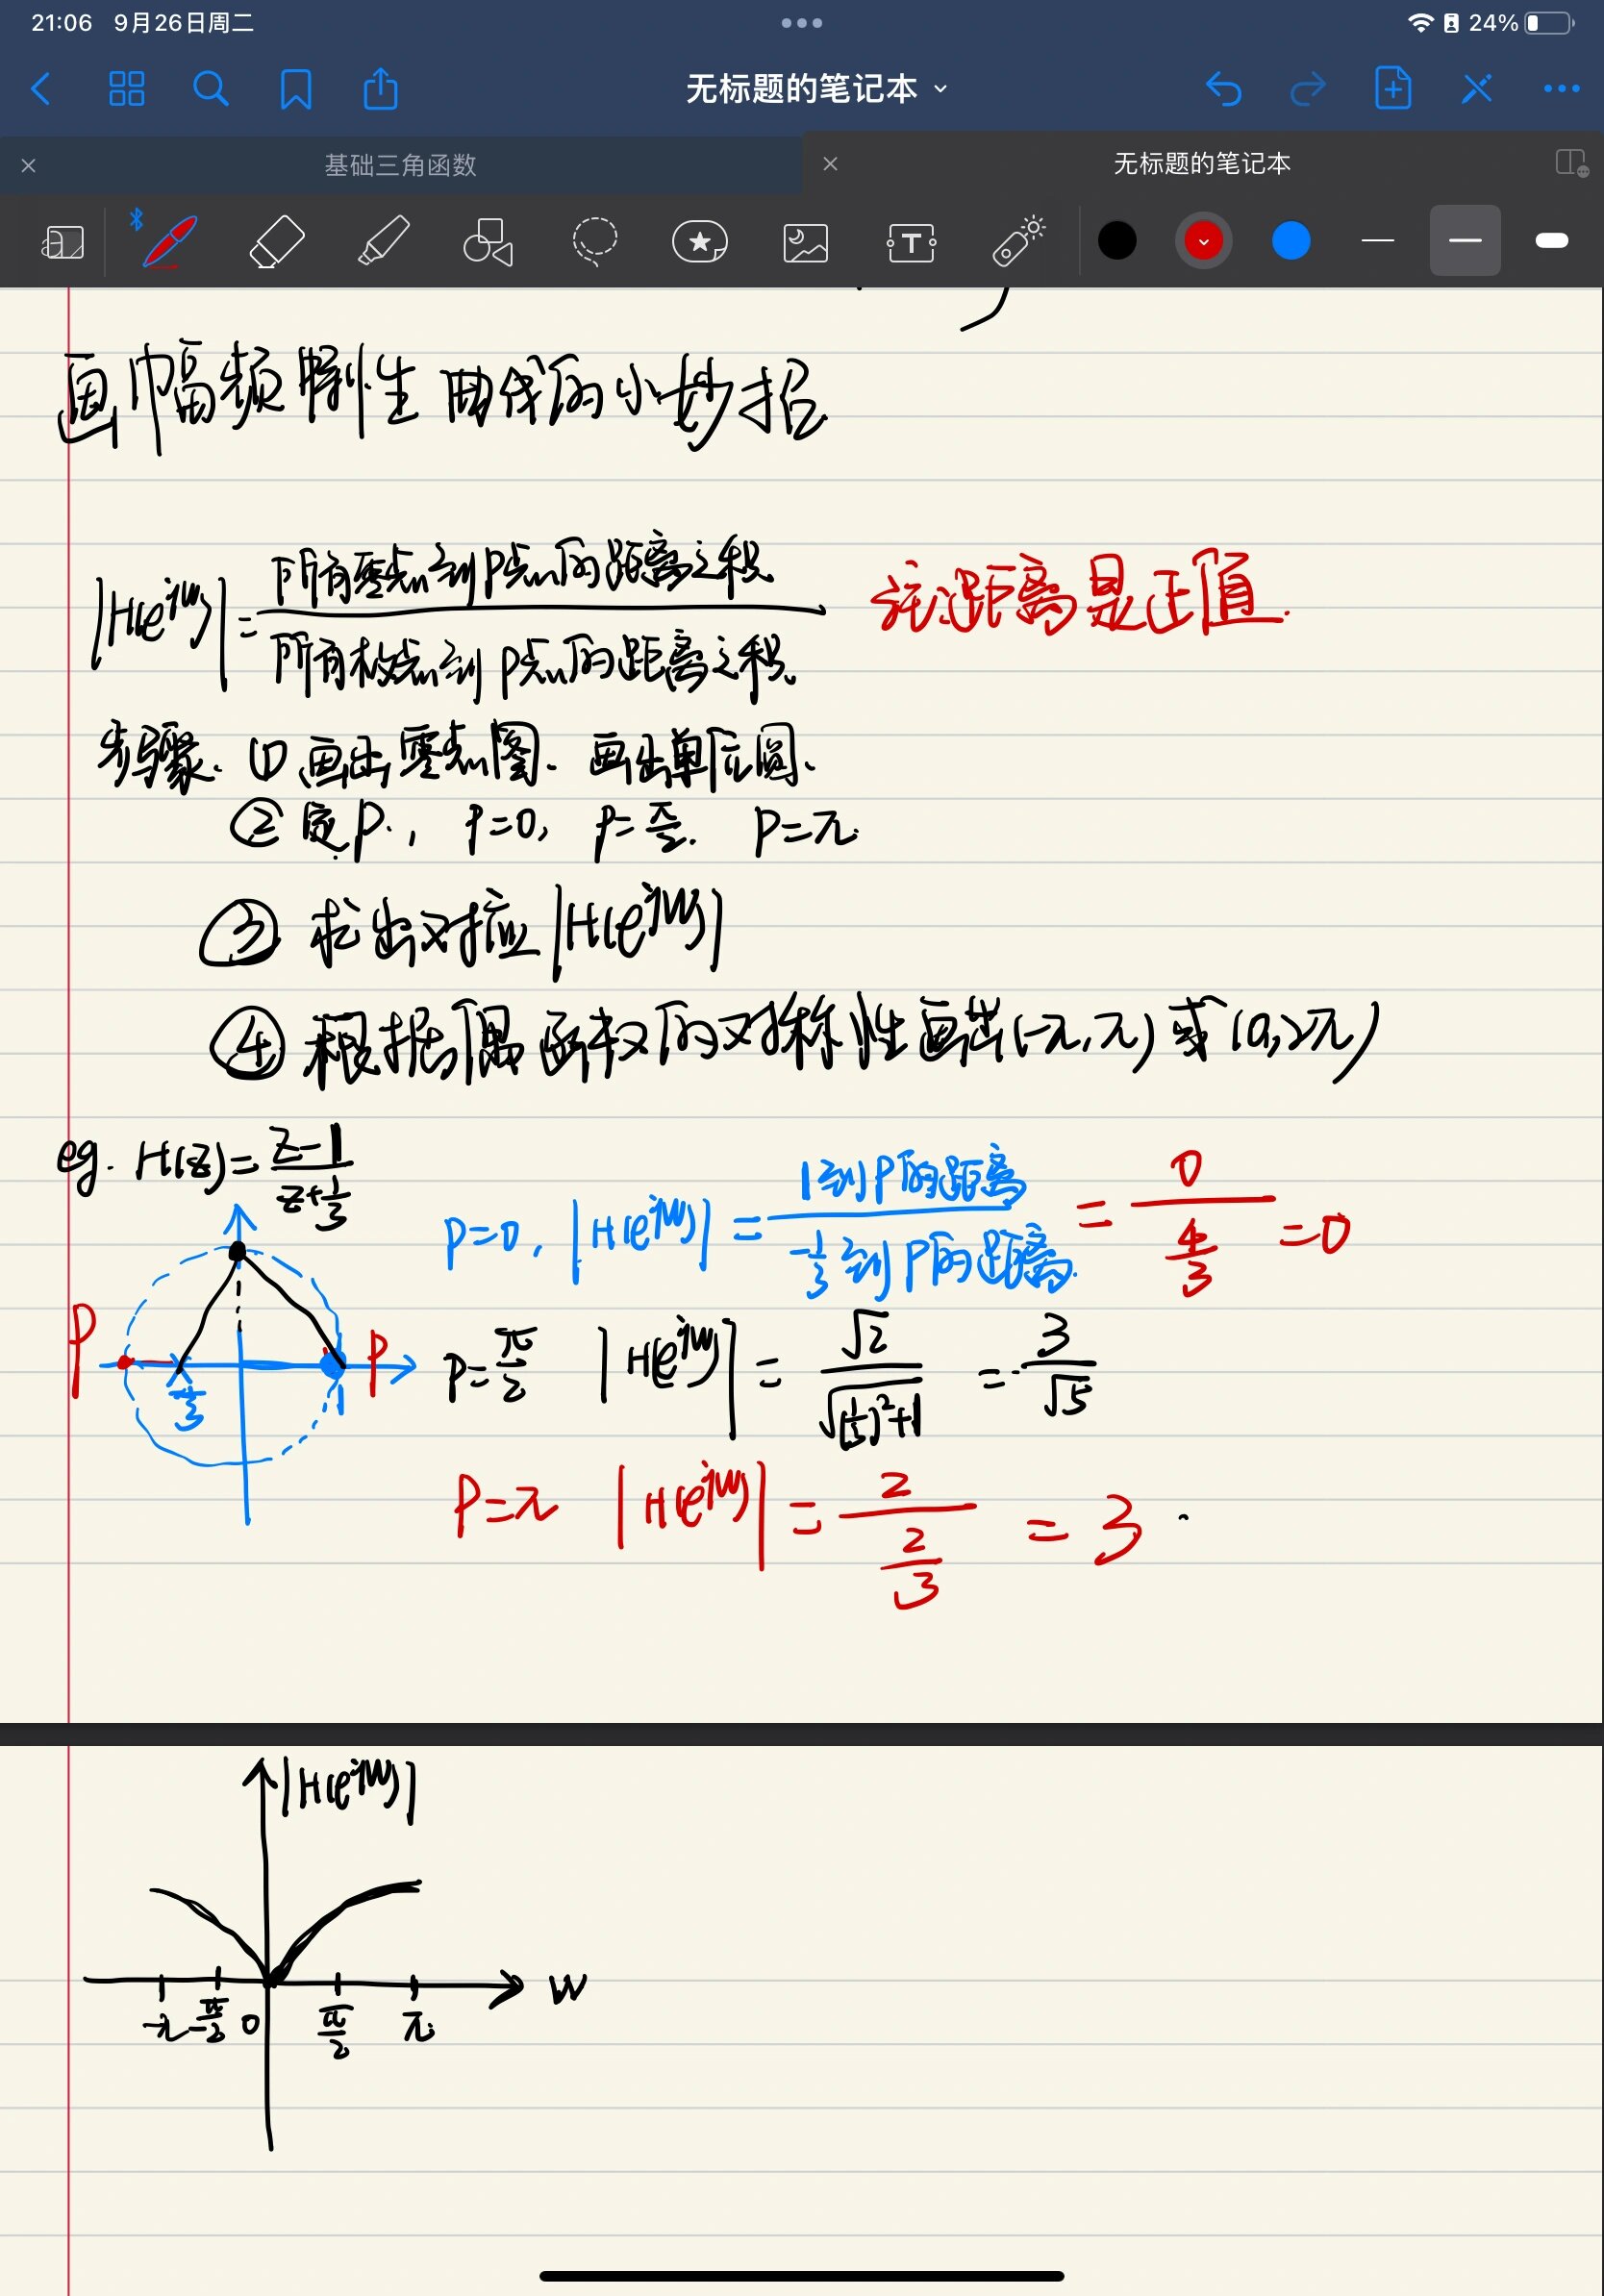 21:06 9月26日周二
24%
无标题的笔记本
基础三角函数
无标题的笔记本
画幅频特性曲线的小妙招
|H(e^{jw})| = 所有零点到P点的距离之积 / 所有极点到P点的距离之积
注:距离是正值.
步骤. ① 画出零点图. 画出单位圆.
② 定P., P=0, P=π/2. P=π.
③ 求出对应|H(e^{jw})|
④ 根据偶函数的对称性画出(-π,π)或(0,2π)
eg. H(z)=(z-1)/(z+1/3)
P=0, |H(e^{jw})| = 1到P的距离 / -1/3到P的距离. = 0/(4/3) =0
P P
-1/3 1
P=π/2 |H(e^{jw})| = √2/√((1/3)²+1) = 3/√5
P=π |H(e^{jw})| = 2/(2/3) = 3
|H(e^{jw})|
w
-π -π/2 0 π/2 π